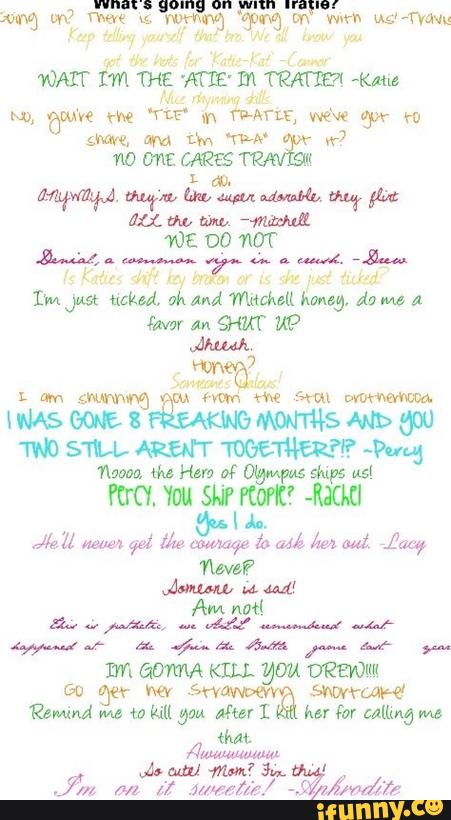 What's going on with Tratie?
Going on? There is nothing "going on" with us! -Travis
Keep telling yourself that bro. We all know you
got the hots for 'Katie-Kat' -Connor
WAIT I'M THE "ATIE" IN TRATIE?! -Katie
Nice rhyming skills.
No, you're the "TIE" in TRATIE, we've got to
share, and I'm "TRA" got it?
NO ONE CARES TRAVIS!!!
I do.
Anyways. they're like super adorable. they flirt
ALL the time. -Mitchell
WE DO NOT
Denial, a common sign in a crush. -Drew
Is Katie's shift key broken or is she just ticked?
I'm just ticked, oh and Mitchell honey, do me a
favor an SHUT UP
Sheesh.
Honey?
Someones jealous!
I am shunning you from the Stoll brotherhood.
I WAS GONE 8 FREAKING MONTHS AND YOU
TWO STILL AREN'T TOGETHER?!? -Percy
Noooo, the Hero of Olympus ships us!
Percy, You Ship PeoPle? -Rachel
Yes I do.
He'll never get the courage to ask her out. -Lacy
Never?
Someone is sad!
Am not!
This is pathetic, we ALL remembered what
happened at the Spin the Bottle game last year
I'M GONNA KILL YOU DREW!!!!
Go get her Strawberry Shortcake!
Remind me to kill you after I kill her for calling me
that.
Awwwwwww
So cute! Mom? Fix this!
I'm on it sweetie! -Aphrodite
ifunny.co